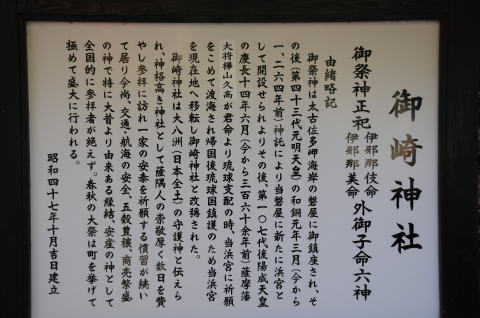 御崎神社
御祭神正祀 伊邪那岐命 伊邪那美命 外御子命六神
由緒略記
御祭神は太古佐多岬海岸の磐屋に御鎮座され、そ
の後(第四十三代元明天皇)の和銅元年三月(今から
一、二六四年前)神託により当磐屋に新たに浜宮と
して開設せられよりその後、第一〇七代後陽成天皇
の慶長十四年六月(今から三百六十余年前)薩摩藩
大将樺山久高が君命より琉球支配の時、当浜宮に祈願
をこめて渡海され帰国後琉球国鎮護のため当浜宮
を現在地へ移転し御崎神社と改稱された。
御崎神社は大八洲(日本全土)の守護神と伝えら
れ、神格高き神社として薩隅人の崇敬厚く数日を費
やし参拝に訪れ一家の安泰を祈願する慣習が続い
て居り今尚、交通・航海の安全、五穀豊穣、商売繁盛
の神で特に大昔より由来ある縁結、安産の神として
全国的に参拝者が絶えず。春秋の大祭は町を挙げて
極めて盛大に行われる。
昭和四十七年十月吉日建立